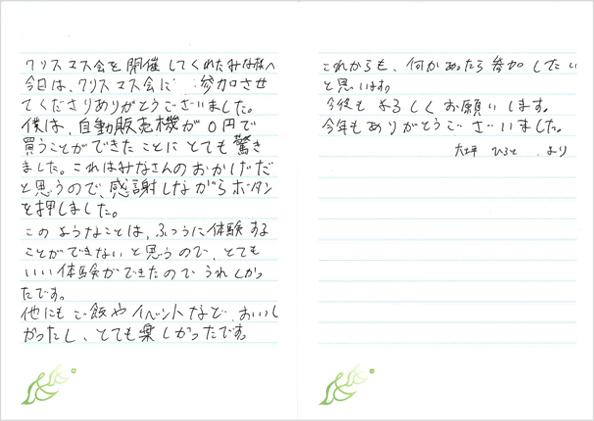 クリスマス会を開催してくれたみなさんへ
今日は、クリスマス会に参加させ
てくださりありがとうございました。
僕は、自動販売機が0円で
買うことができたことにとても驚き
ました。これはみなさんのおかげだ
と思うので、感謝しながらボタン
を押しました。
このようなことは、ふつうに体験する
ことができないと思うので、とても
いい体験ができたのでうれしかっ
たです。
他にもご飯やイベントなど、おいし
かったし、とても楽しかったです。
これからも、何かあったら参加したい
と思います。
今後もよろしくお願いします。
今年もありがとうございました。
大坪 ひろと より